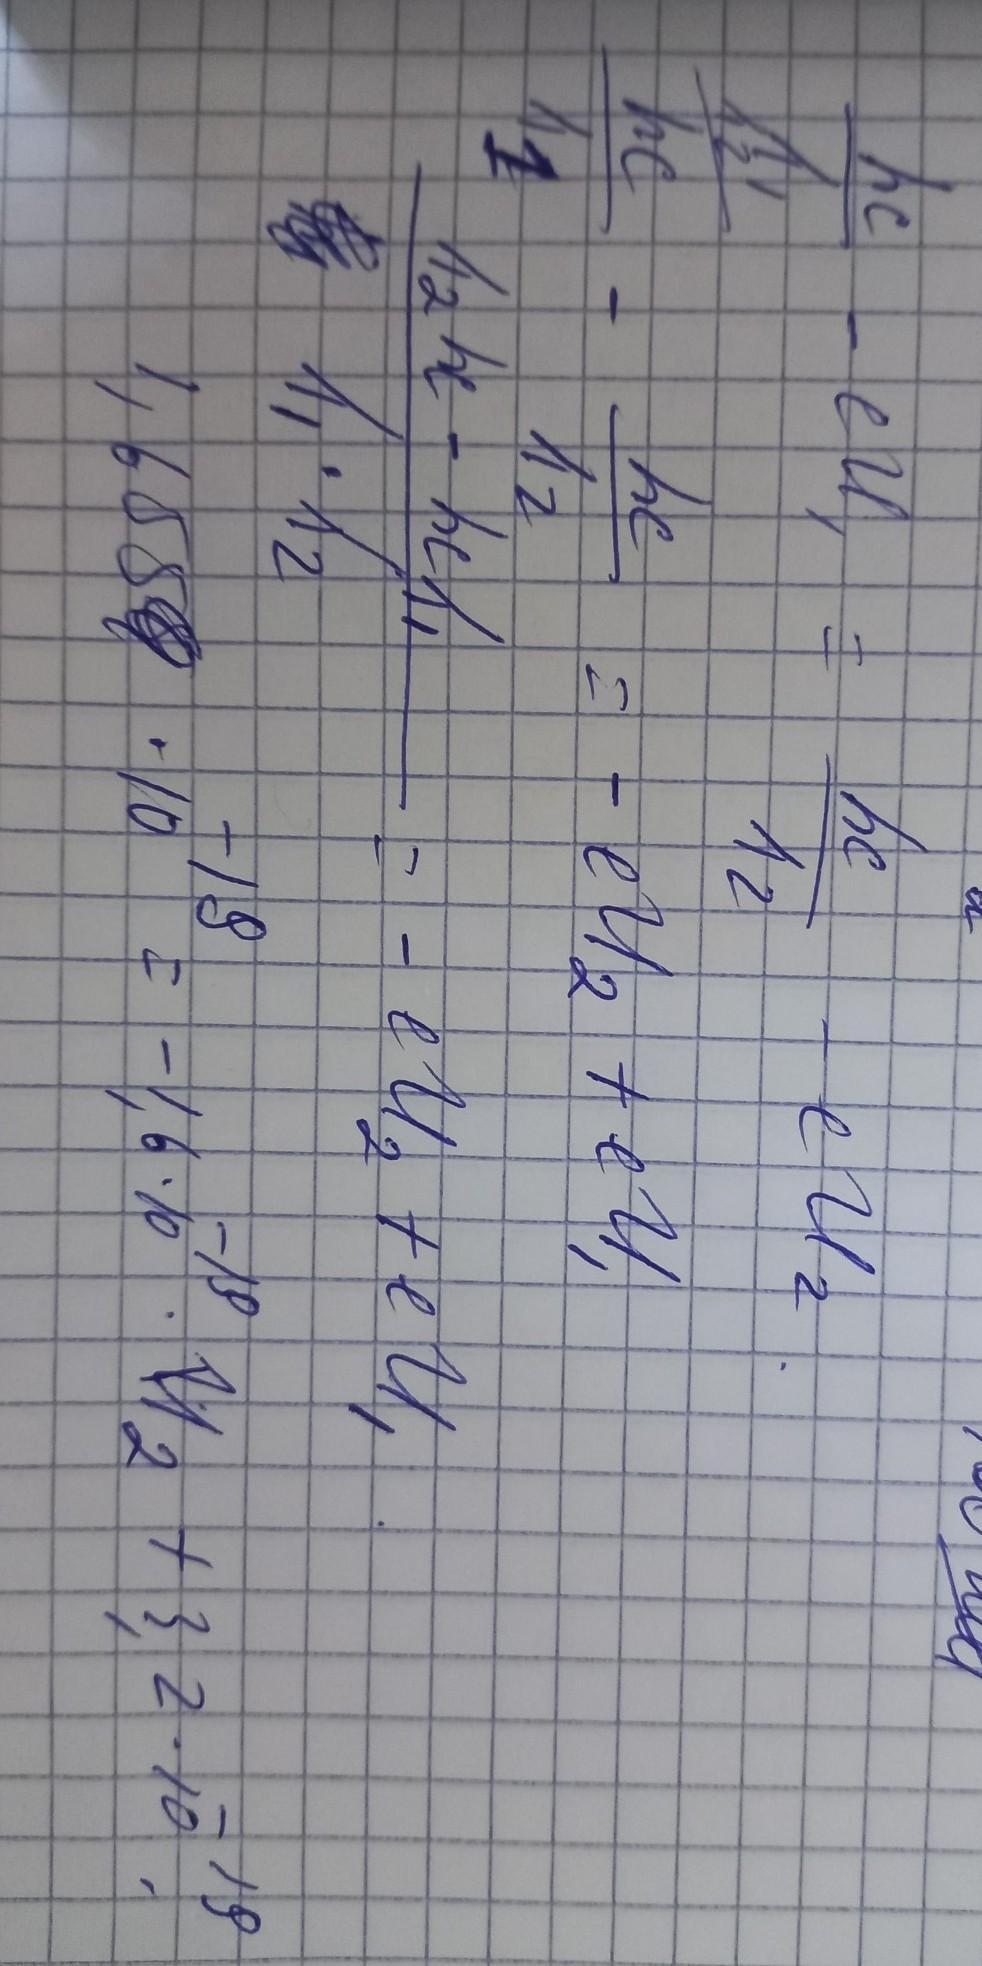 hc/λ₁ - eU₁ = hc/λ₂ - eU₂.
hc/λ1 - hc/λ₂ = - eU₂ + eU₁
(λ₂hc - hcλ₁)/(λ₁ · λ₂) = - eU₂ + eU₁.
1,655 · 10⁻¹⁹ = -1,6 · 10⁻¹⁹ · U₂ + 3,2 · 10⁻¹⁹;